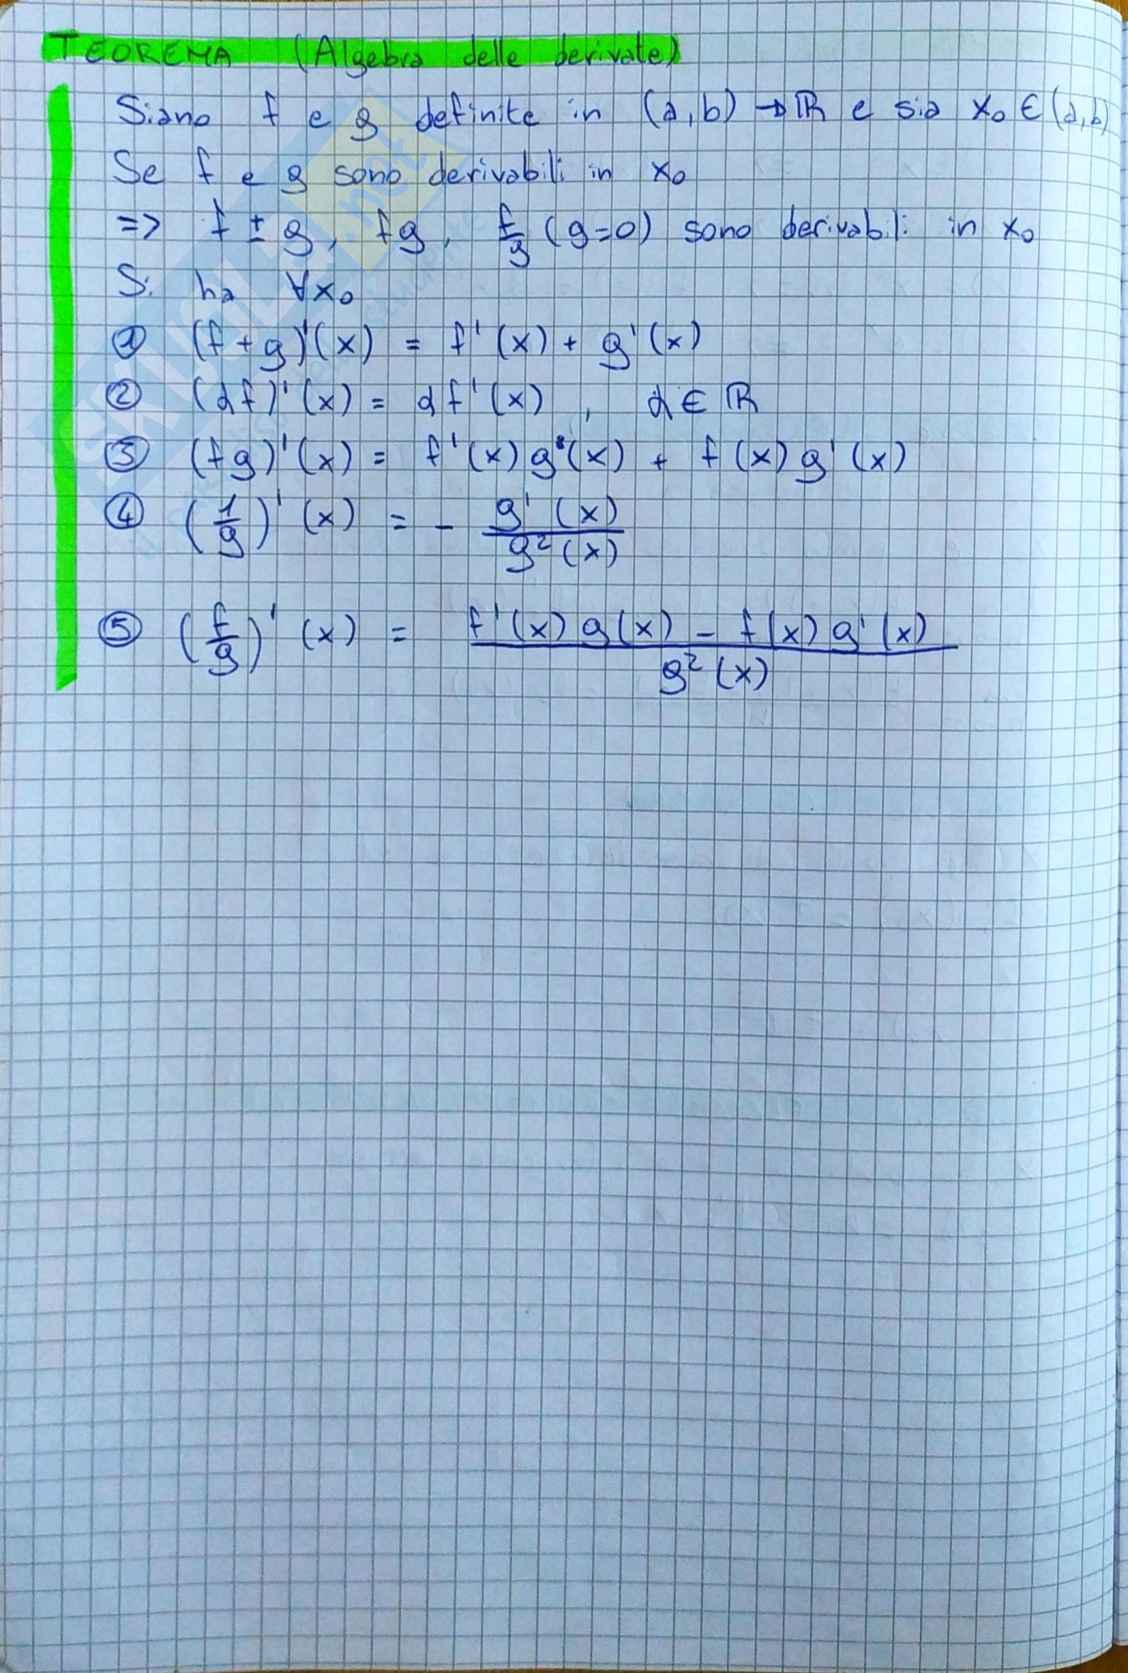 TEOREMA (Algebra delle derivate)
Siano f e g definite in (a,b) → ℝ e sia x₀ ∈ (a,b)
Se f e g sono derivabili in x₀
=> f ± g, fg, f/g (g=0) sono derivabili in x₀
Si ha ∀x₀
① (f+g)'(x) = f'(x) + g'(x)
② (αf)'(x) = αf'(x), α ∈ ℝ
③ (fg)'(x) = f'(x)g'(x) + f(x)g'(x)
④ (1/g)'(x) = - g'(x)/g²(x)
⑤ (f/g)'(x) = f'(x)g(x) - f(x)g'(x)/g²(x)